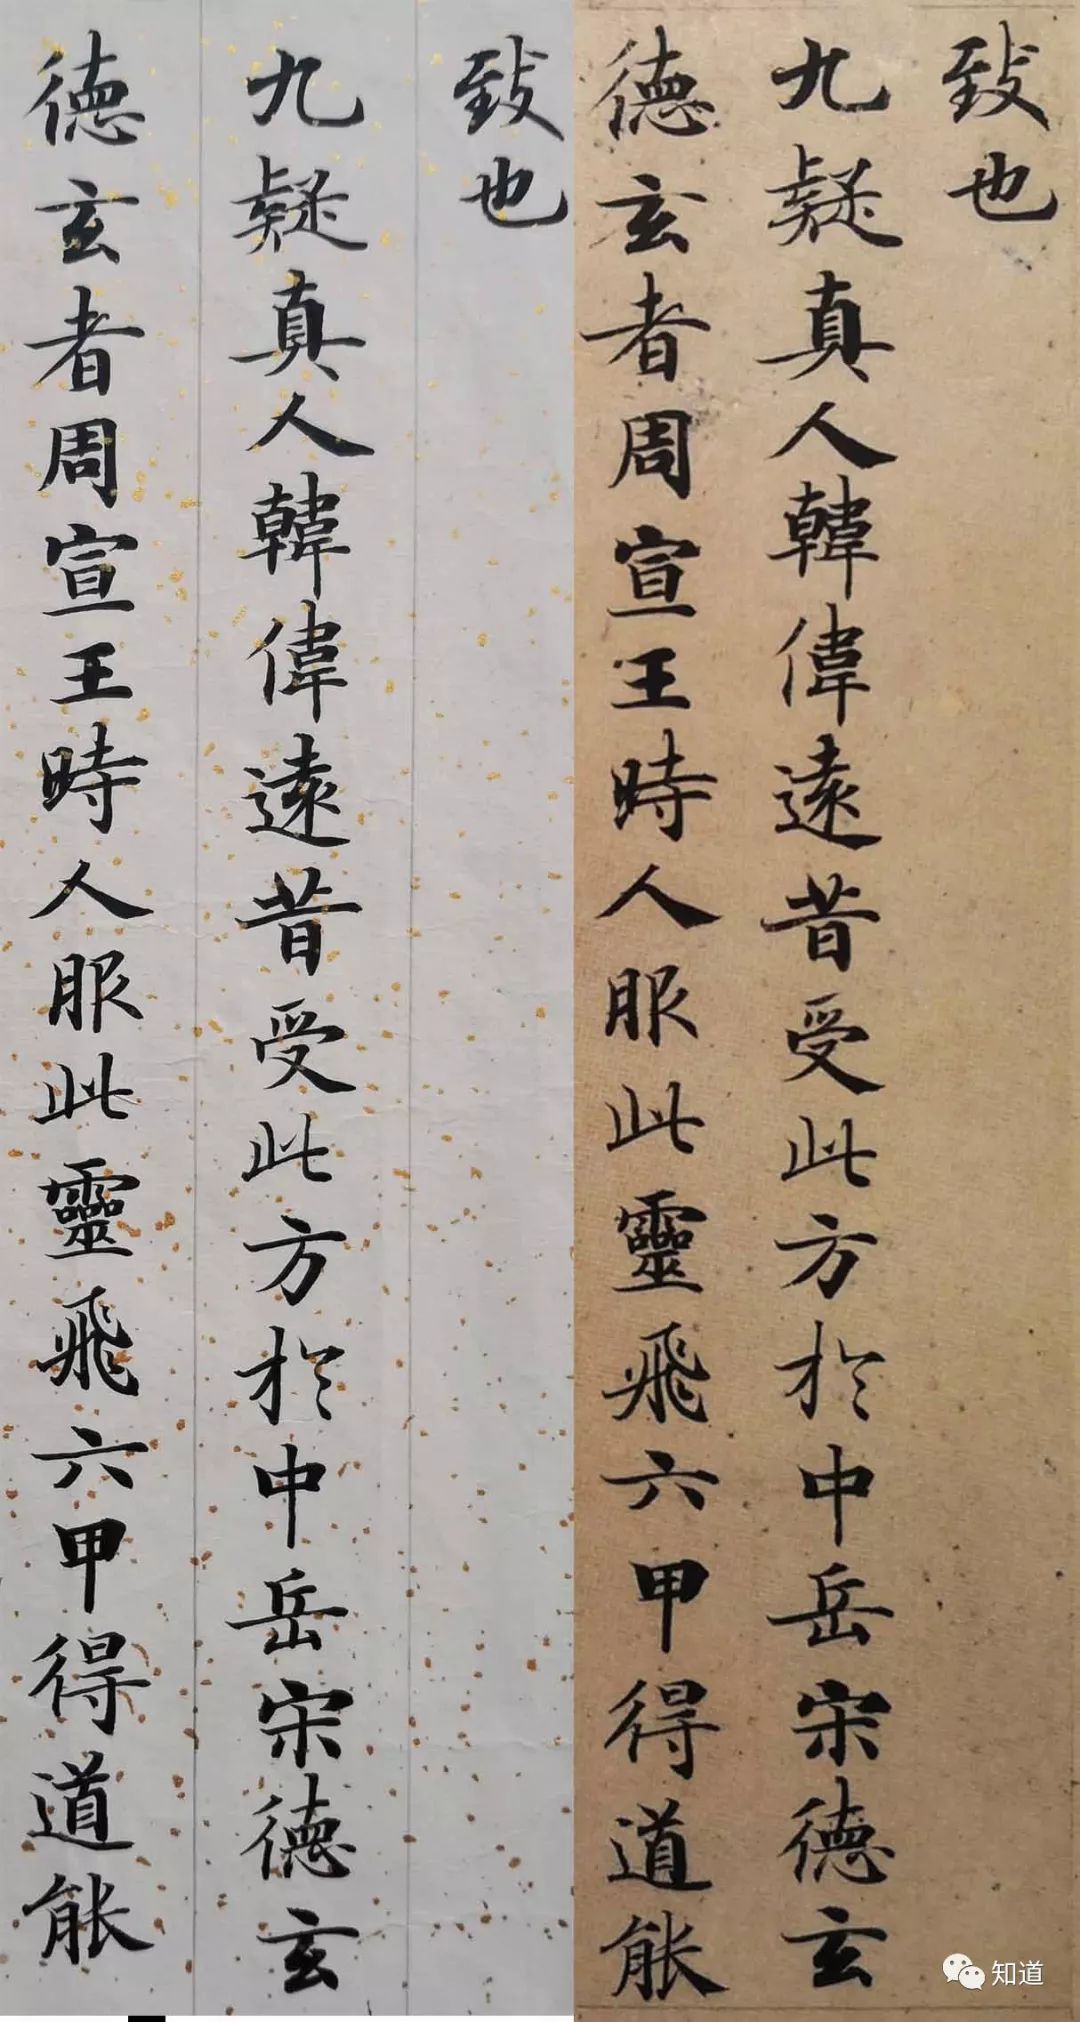 致也
九疑真人韓偉遠昔受此方於中岳宋德玄
德玄者周宣王時人服此靈飛六甲得道能
致也
九疑真人韓偉遠昔受此方於中岳宋德玄
德玄者周宣王時人服此靈飛六甲得道能
知道